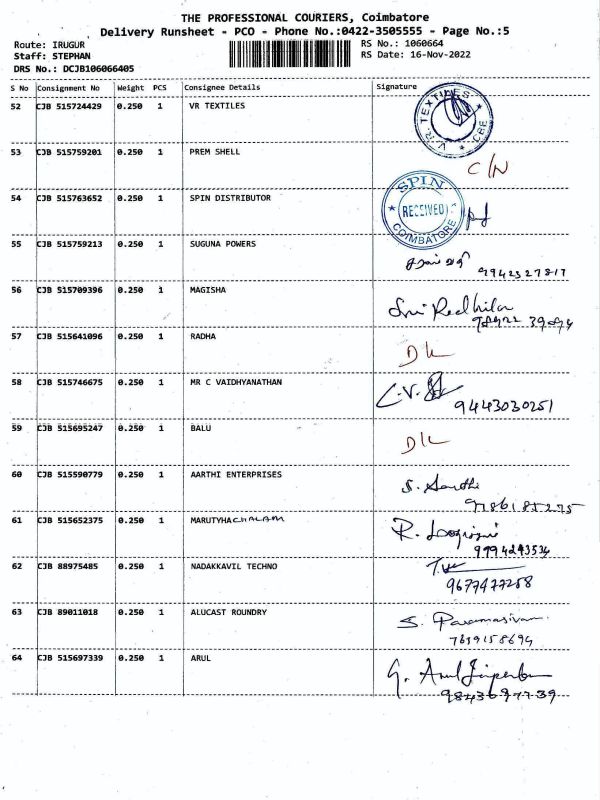 THE PROFESSIONAL COURIERS, Coimbatore
Delivery Runsheet - PCO - Phone No.:0422-3505555 - Page No.:5
Route: IRUGUR RS No.: 1060664
Staff: STEPHAN RS Date: 16-Nov-2022
DRS No.: DCJB106066405
S No Consignment No Weight PCS Consignee Details Signature
52 CJB 515724429 0.250 1 VR TEXTILES
V.R. TEXTILES CBE
53 CJB 515759201 0.250 1 PREM SHELL
C/N
54 CJB 515763652 0.250 1 SPIN DISTRIBUTOR
SPIN
RECEIVED
COIMBATORE
55 CJB 515759213 0.250 1 SUGUNA POWERS
9942327817
56 CJB 515709396 0.250 1 MAGISHA
57 CJB 515641096 0.250 1 RADHA
D/L
58 CJB 515746675 0.250 1 MR C VAIDHYANATHAN
C.V.
9443030251
59 CJB 515695247 0.250 1 BALU
D/L
60 CJB 515590779 0.250 1 AARTHI ENTERPRISES
S. Aarthi
9786185275
61 CJB 515652375 0.250 1 MARUTYHACHALAM
R.
9994243534
62 CJB 88975485 0.250 1 NADAKKAVIL TECHNO
9677477258
63 CJB 89011018 0.250 1 ALUCAST ROUNDRY
S. Paramasivam
7639158694
64 CJB 515697339 0.250 1 ARUL
G. Arul
9843697739